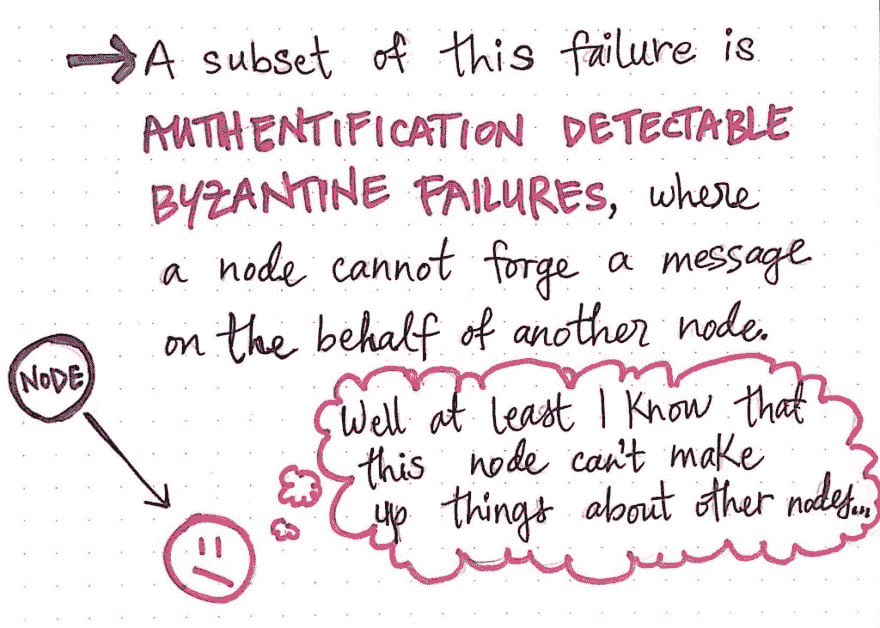 → A subset of this failure is
AUTHENTIFICATION DETECTABLE
BYZANTINE FAILURES, where
a node cannot forge a message
on the behalf of another node.
NODE
Well at least I know that
this node can't make
up things about other nodes...